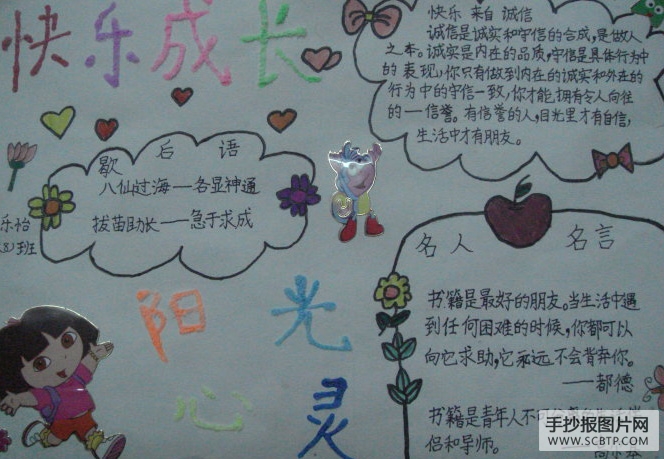 快乐成长
快乐 来自 诚信
诚信是诚实和守信的合成,是做人
之本。诚实是内在的品质,守信是具体行为中
的表现,你只有做到内在的诚实和外在的
行为中的守信一致,你才能拥有令人向往
的一信誉。有信誉的人,目光里才有自信,
生活中才有朋友。
歇后语
八仙过海——各显神通
拔苗助长——急于求成
乐怡
班
阳光
心灵
名人 名言
书籍是最好的朋友。当生活中遇
到任何困难的时候,你都可以
向它求助,它永远不会背弃你。
——都德
书籍是青年人不可
侣和导师。
手抄报图片网
WWW.SCBTP.COM